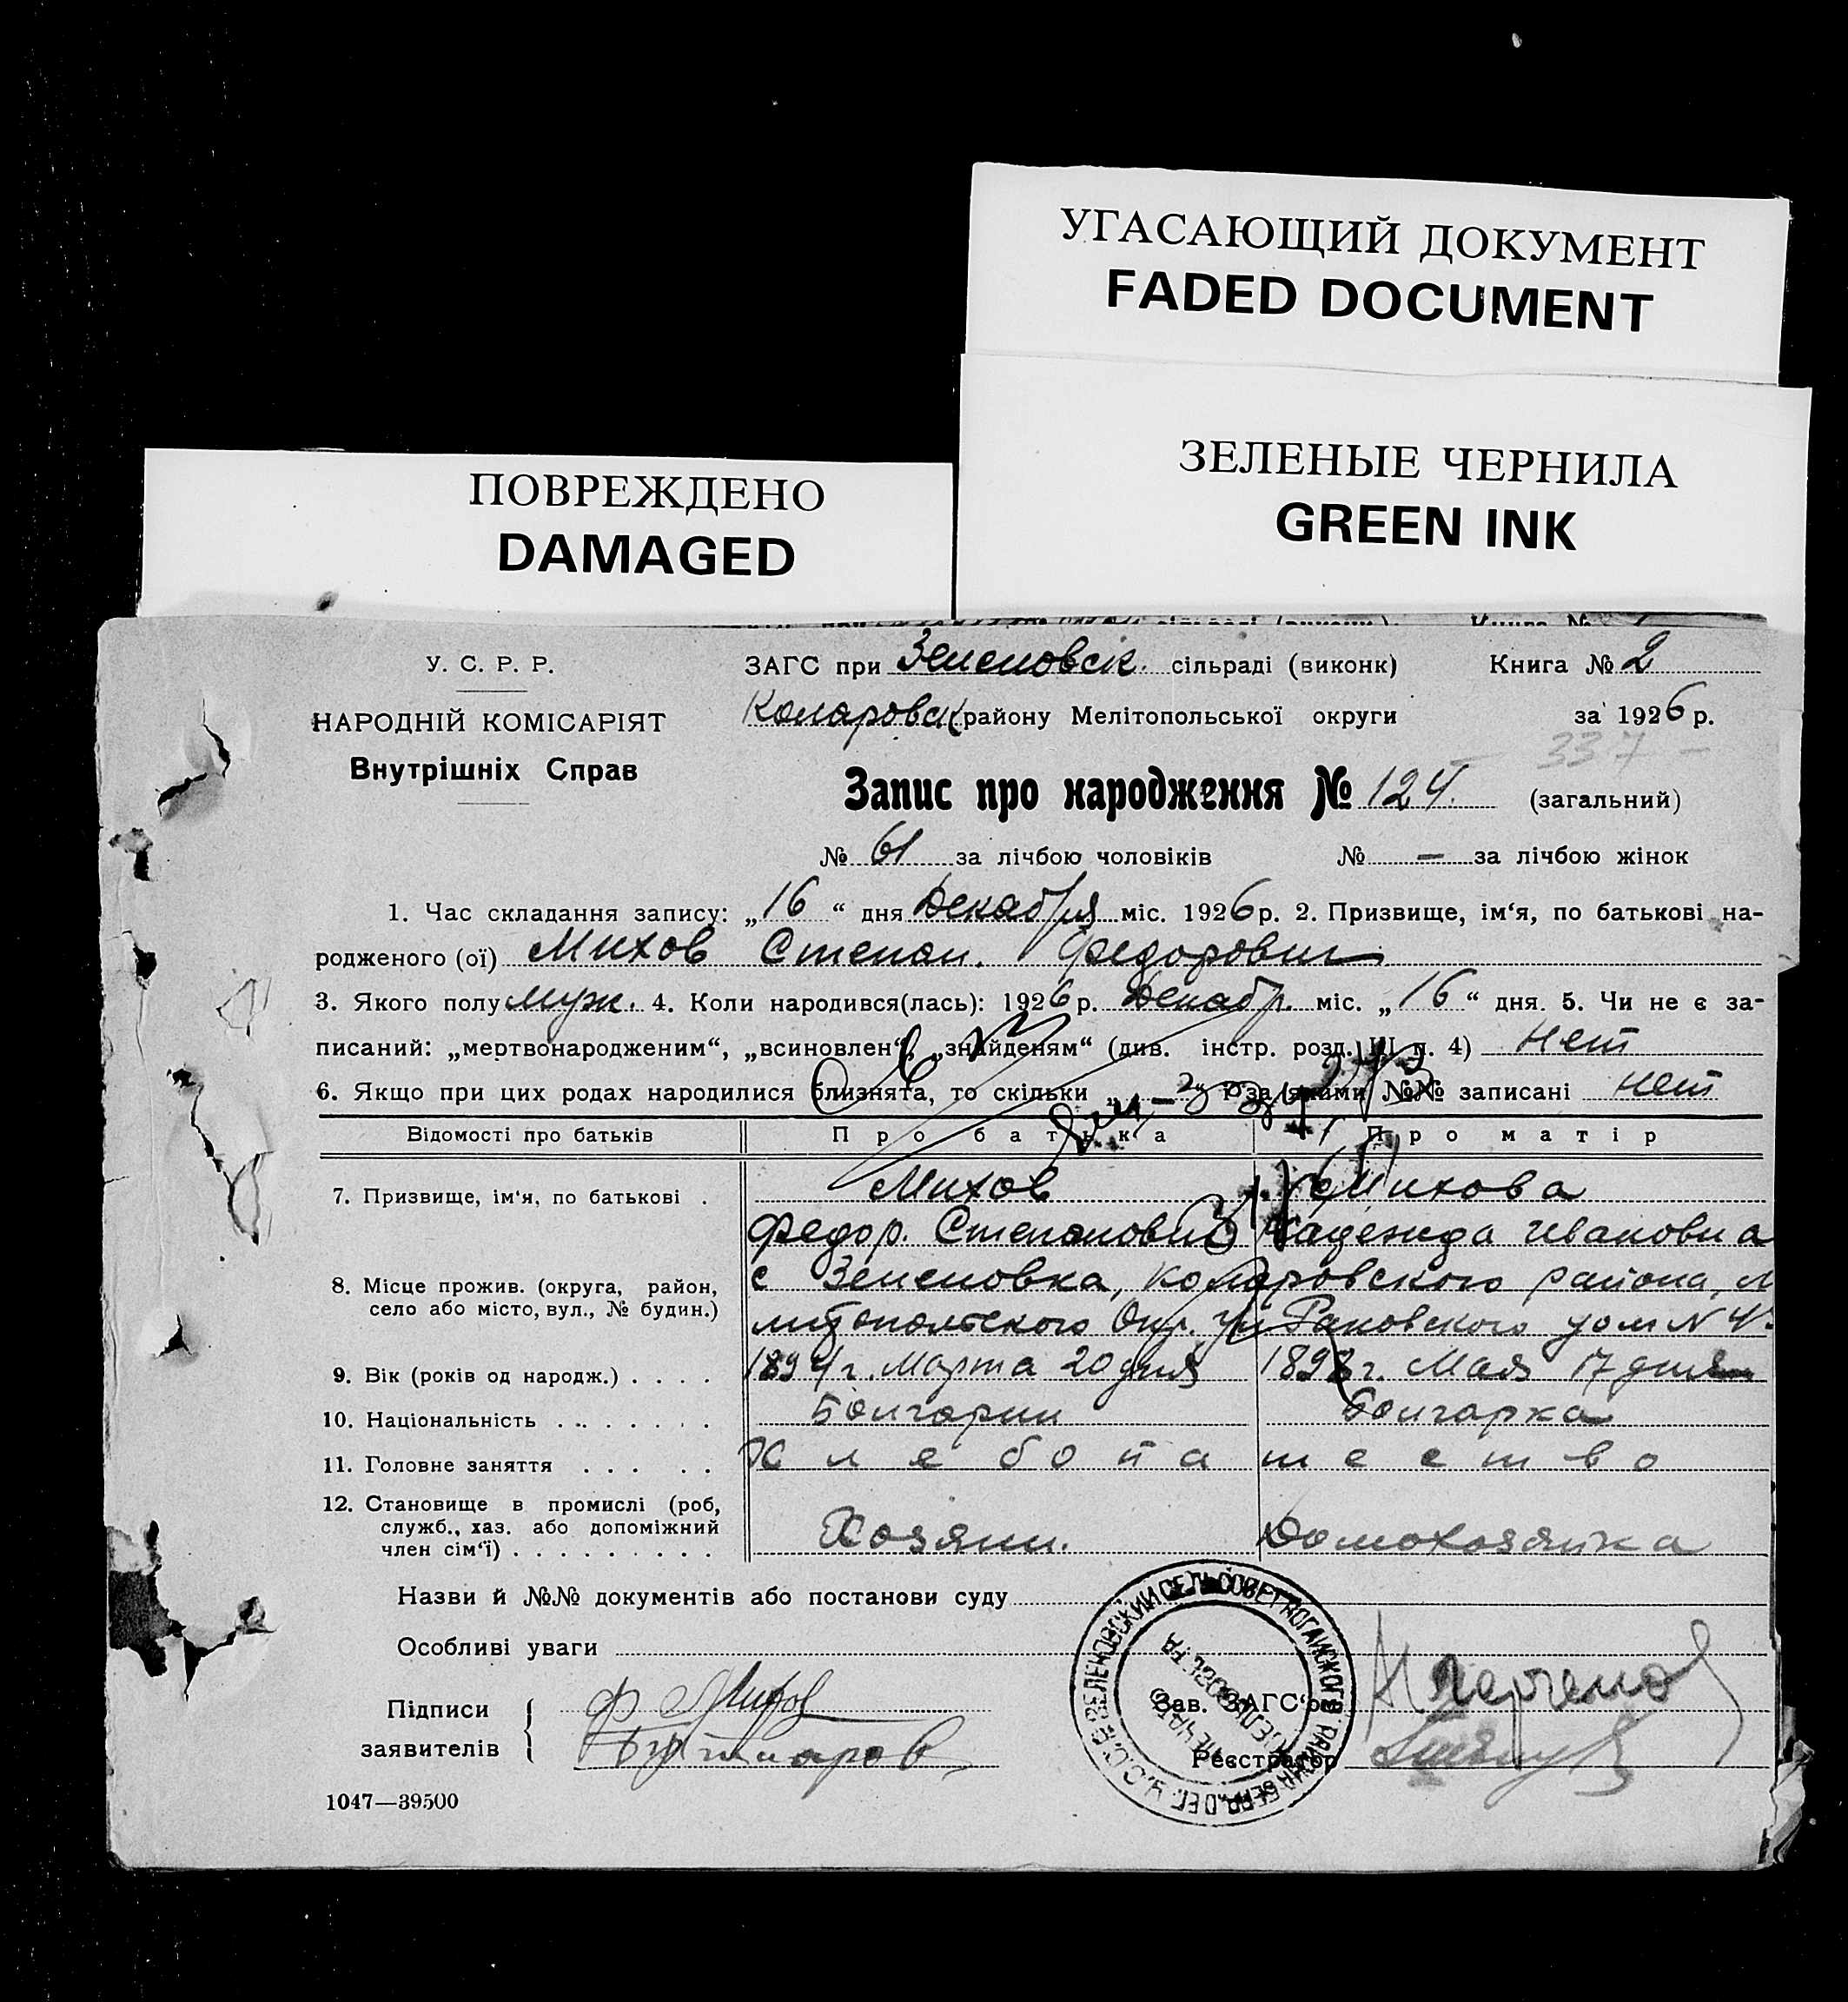 УГАСАЮЩИЙ ДОКУМЕНТ
FADED DOCUMENT
ЗЕЛЕНЫЕ ЧЕРНИЛА
GREEN INK
ПОВРЕЖДЕНО
DAMAGED
У. С. Р. Р.
НАРОДНІЙ КОМІСАРІЯТ
Внутрішніх Справ
ЗАГС при Зеленовск. сільраді (виконк) Книга № 2
Коларовск району Мелітопольської округи за 1926 р.
337
Запис про народження № 124. (загальний)
№ 61 за лічбою чоловіків № — за лічбою жінок
1. Час складання запису: „16“ дня Декабря міс. 1926 р. 2. Призвище, ім‘я, по батькові на-
родженого (ої) Михов Степан. Федорович
3. Якого полу муж. 4. Коли народився(лась): 1926 р. Декабр. міс. „16“ дня. 5. Чи не є за-
писаний: „мертвонародженим“, „всиновлен“, „знайденям“ (див. інстр. розд. III п. 4) нет
6. Якщо при цих родах народилися близнята, то скільки „ — “ за якими №№ записані нет
Відомості про батьків Про батька Про матір
7. Призвище, ім‘я, по батькові . Михов Михова
Федор. Степанович Надежда Ивановна
8. Місце прожив. (округа, район, село або місто, вул., № будин.) с Зеленовка, Коларовского района, М
литопольского Окр. ул Раковского дом N 4.
9. Вік (років од народж.) . . . . 1894 г. Марта 20 дня 1898 г. Мая 17 дня
10. Національність . . . . . . . Болгарин Болгарка
11. Головне заняття . . . . . Хлебопашество
12. Становище в промислі (роб, служб., хаз. або допоміжний член сім‘ї) . . . . . . . . . Хозяин. Домохозяйка
Назви й №№ документів або постанови суду
Особливі уваги
Підписи заявителів { Ф Михов
Зав. ЗАГС‘ом
Реєстратор
ЗЕЛЕНОВСКИЙ СЕЛЬСОВЕТ НОГАЙСКОГО РАЙОНА БЕРД. ОКР. У.С.С.Р.
1047—39500